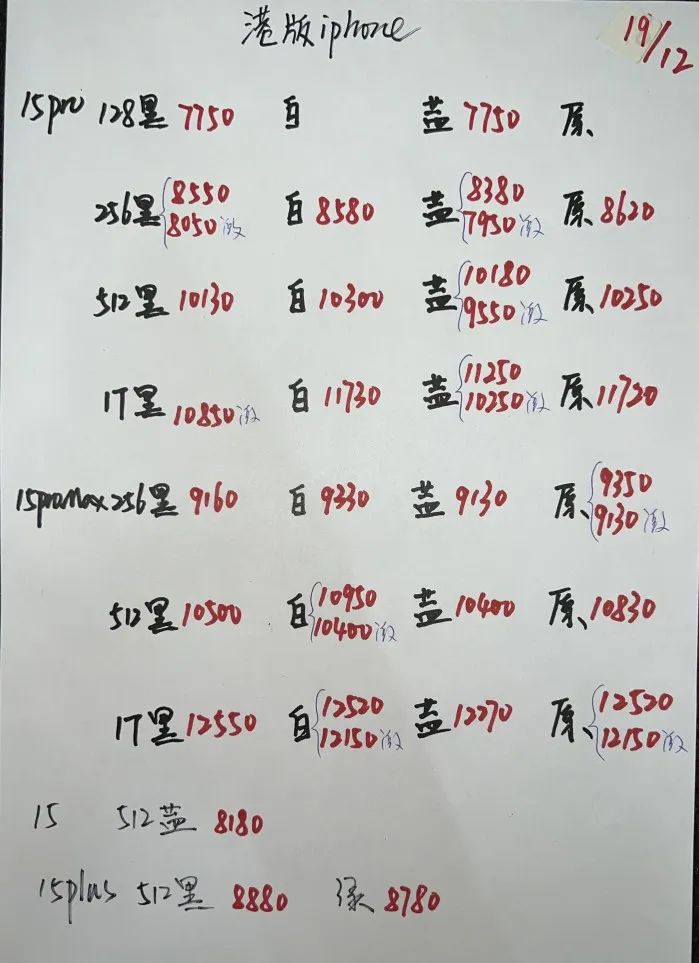 港版iphone
19/12
15pro 128黑 7750 白 蓝 7750 原
256黑 8550 8050激 白 8580 蓝 8380 7950激 原 8620
512黑 10130 白 10300 蓝 10180 9550激 原 10250
1T黑 10850激 白 11730 蓝 11250 10250激 原 11720
15proMax 256黑 9160 白 9330 蓝 9130 原 9350 9130激
512黑 10500 白 10950 10400激 蓝 10400 原 10830
1T黑 12550 白 12520 12150激 蓝 12270 原 12520 12150激
15 512蓝 8180
15plus 512黑 8880 绿 8780